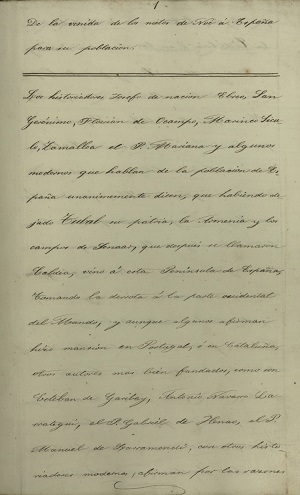 1
De la venida de los nietos de Noé á España
para su poblacion.
Los historiadores Josef de nacion Ebreo, San
Gerónimo, Florian de Ocampo, Marineo Sicu-
lo, Zamalloa el P. Mariana y algunos
modernos que hablan de la poblacion de Es-
paña unanimemente dicen, que habiendo de-
jado Tubal su patria, la Armenia y los
campos de Senaar, que después se llamaron
Caldea, vino á esta Peninsula de España,
tomando la derrota á la parte occidental
del Mundo, y aunque algunos afirman
hizo mansion en Portugal, ó en Cataluña,
otros autores mas bien fundados, como son
Esteban de Garibay, Antonio Navarro La-
rreategui, el P. Gabriel de Henao, el P.
Manuel de Larramendi, con otros histo-
riadores modernos, afirman por las razones